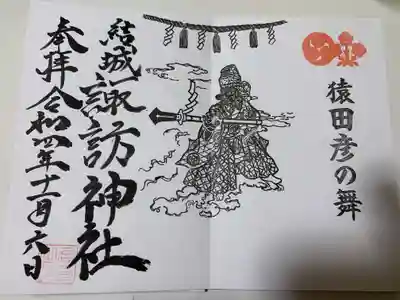 猿田彦の舞
結城諏訪神社
参拝令和四年十一月六日